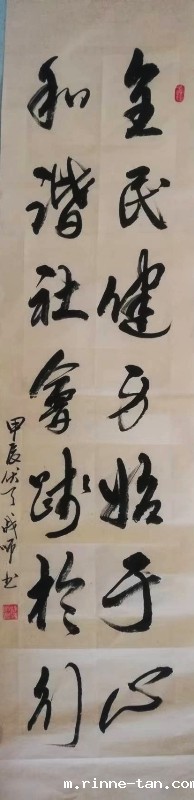 全民健身始于心
和谐社會践於行
甲辰伏天
书
m.rinne-tan.com